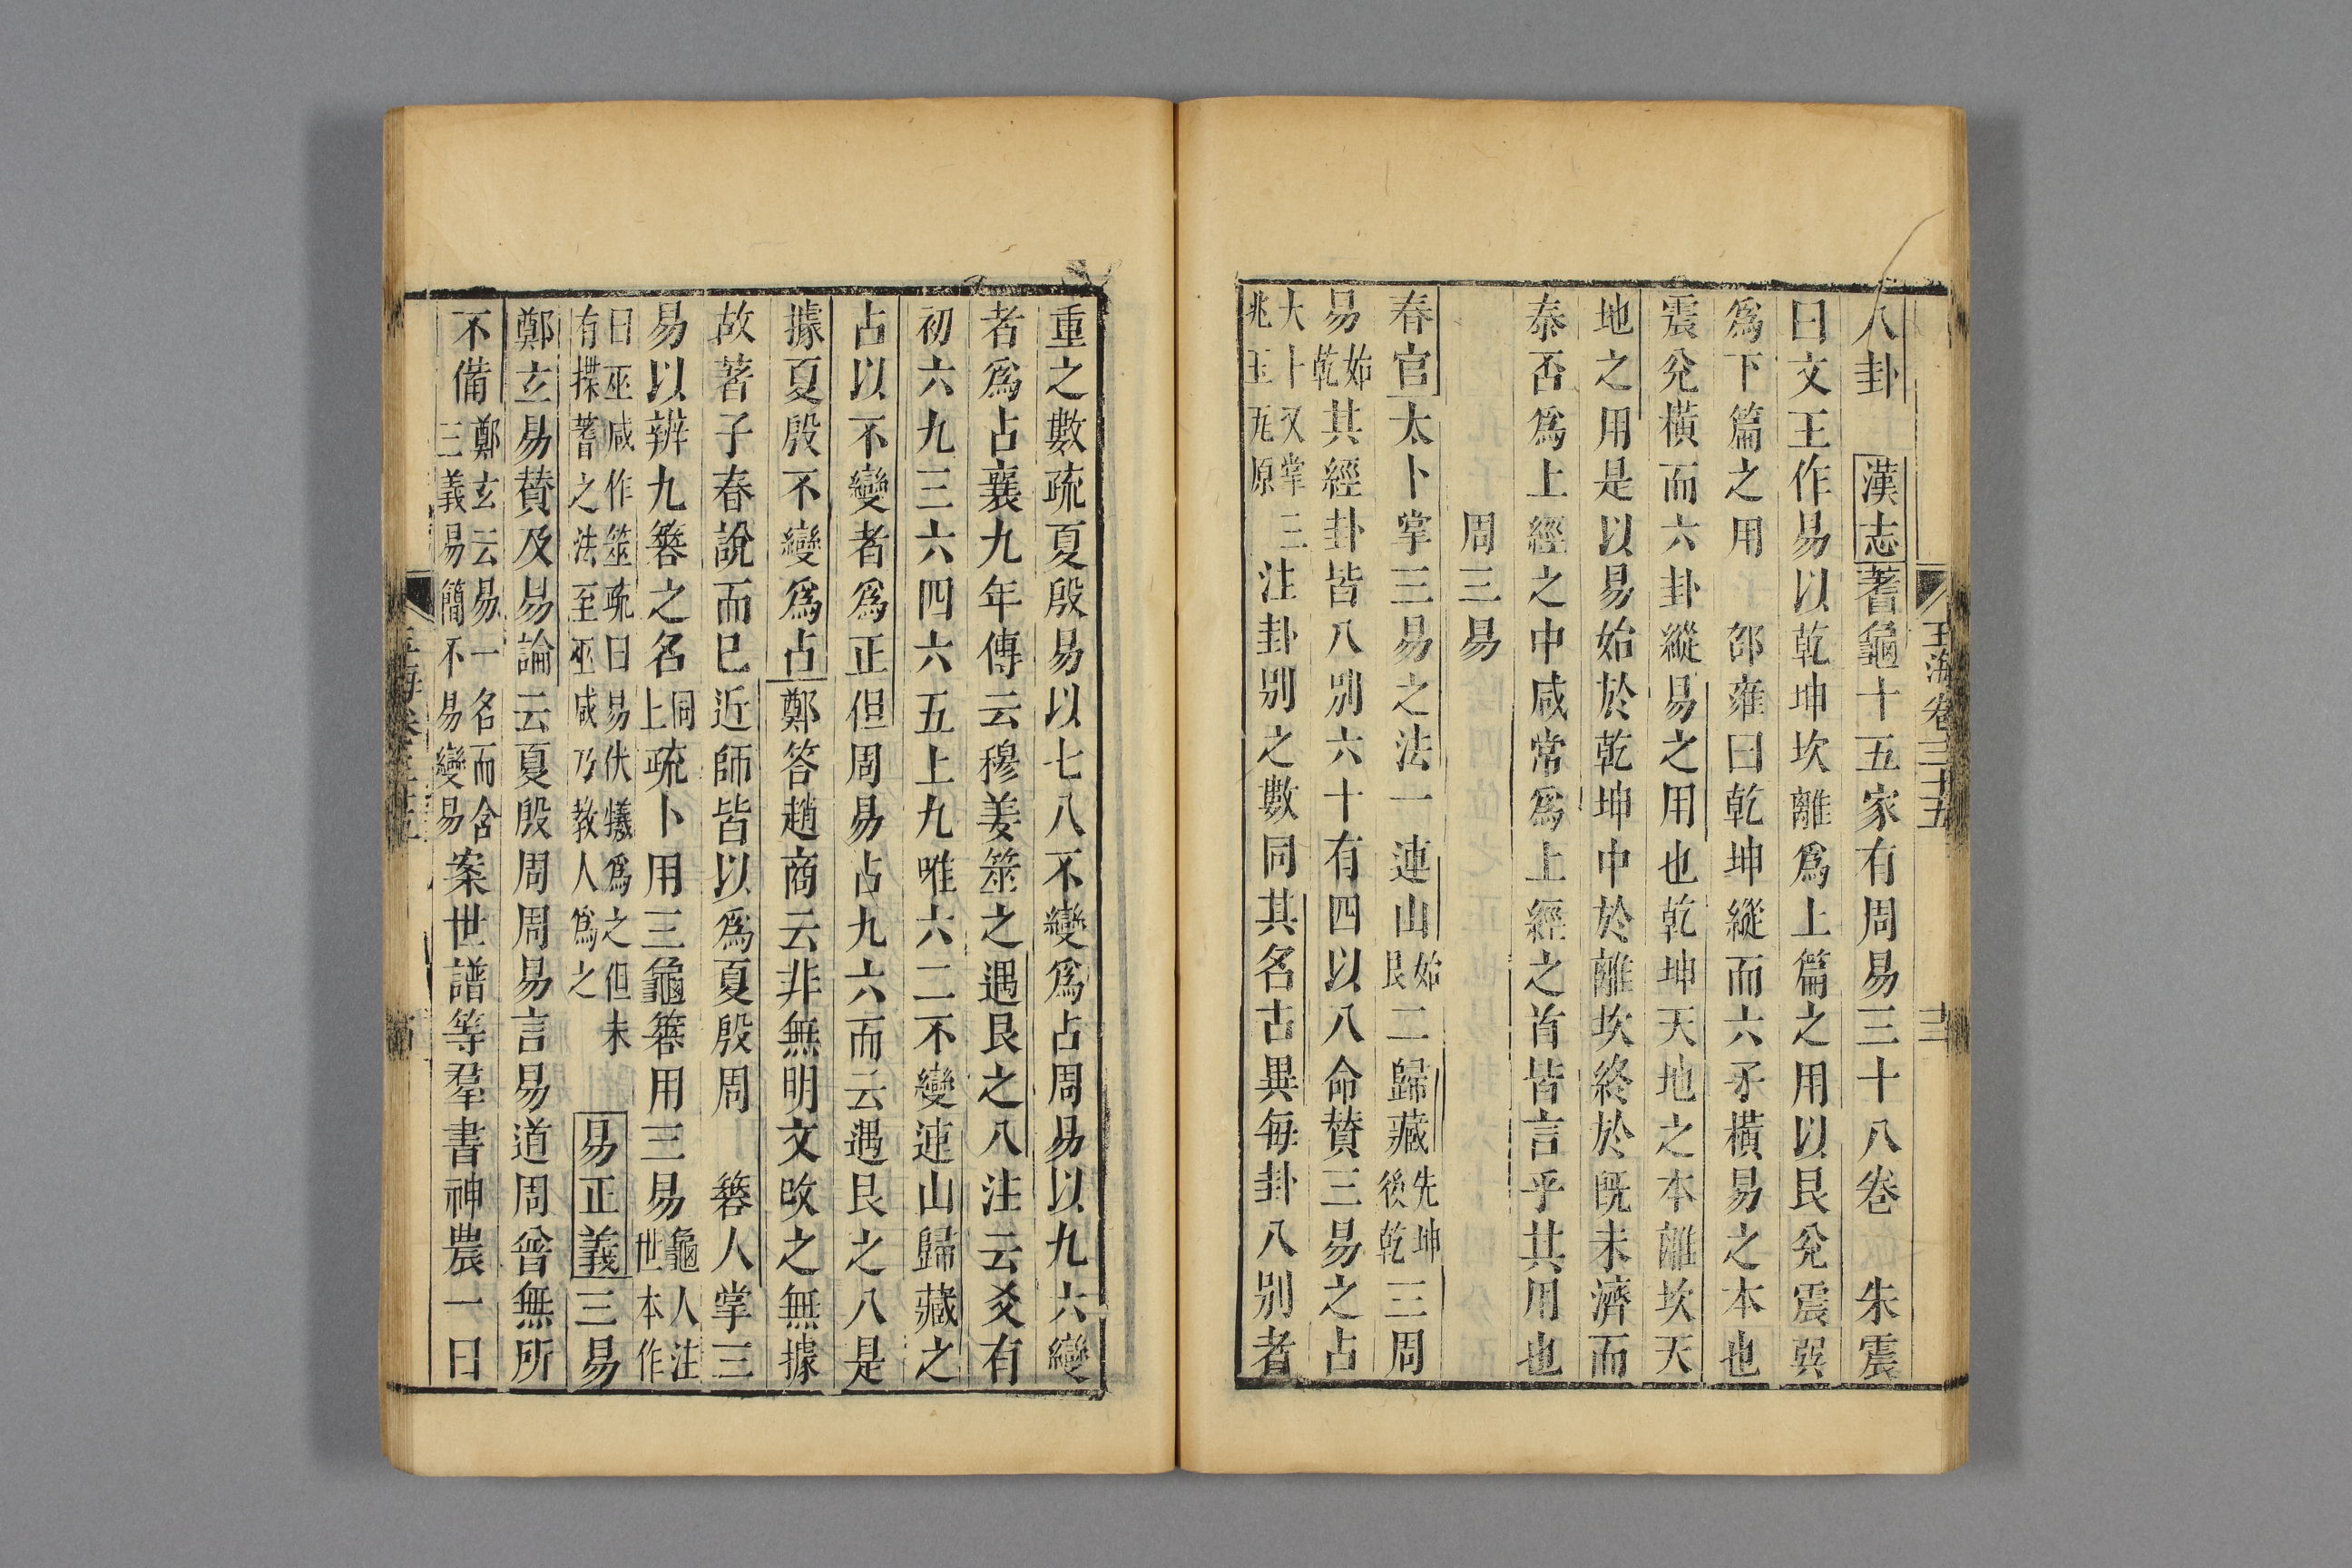 玉海卷三十五 十三
八卦 漢志蓍龜十五家有周易三十八卷 朱震
曰文王作易以乾坤坎離爲上篇之用以艮兌震巽
爲下篇之用 邵雍曰乾坤縱而六子橫易之本也
震兌橫而六卦縱易之用也乾坤天地之本離坎天
地之用是以易始於乾坤中於離坎終於旣未濟而
泰否爲上經之中咸常爲上經之首皆言乎其用也
周三易
春官太卜掌三易之法一連山始艮二歸藏先坤後乾三周
易始乾其經卦皆八別六十有四以八命贊三易之占
大卜又掌三兆玉瓦原注卦別之數同其名古異每卦八別者
重之數疏夏殷易以七八不變爲占周易以九六變
者爲占襄九年傳云穆姜筮之遇艮之八注云爻有
初六九三六四六五上九唯六二不變連山歸藏之
占以不變者爲正但周易占九六而云遇艮之八是
據夏殷不變爲占鄭答趙商云非無明文攺之無據
故著子春說而已近師皆以爲夏殷周 簭人掌三
易以辨九簭之名上同疏卜用三龜簭用三易龜人注世本作
曰巫咸作筮疏曰易伏犧爲之但未有揲蓍之法至巫咸乃教人爲之 易正義三易
鄭玄易贊及易論云夏殷周周易言易道周曾無所
不備鄭玄云易一名而含三義易簡不易變易案世譜等羣書神農一曰